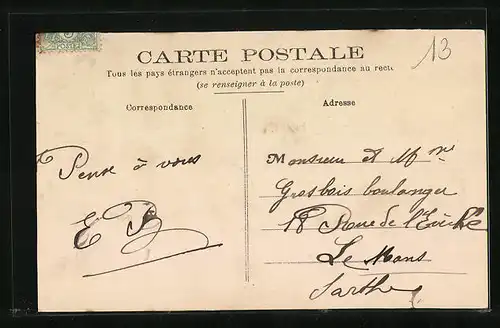 CARTE POSTALE
13
Tous les pays étrangers n'acceptent pas la correspondance au recto
(se renseigner à la poste)
Correspondance
Adresse
Pense à vous
E B
Monsieur et Mme
Grosbois boulanger
18 Rue de l'Evêché
Le Mans
Sarthe